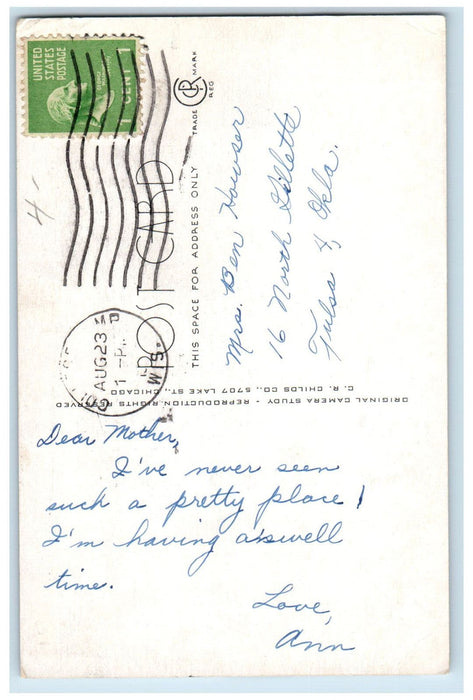 UNITED
STATES
POSTAGE
1 CENT 1
AUG 23
1 - P
WIS.
4-
POST CARD
THIS SPACE FOR ADDRESS ONLY
TRADE CR MARK
REG
Mrs. Ben Howser
16 North Gillette
Tulsa 4, Okla.
ORIGINAL CAMERA STUDY - REPRODUCTION RIGHTS RESERVED
C. R. CHILDS CO., 5707 LAKE ST., CHICAGO
Dear Mother,
I've never seen
such a pretty place!
I'm having a swell
time.
Love,
Ann